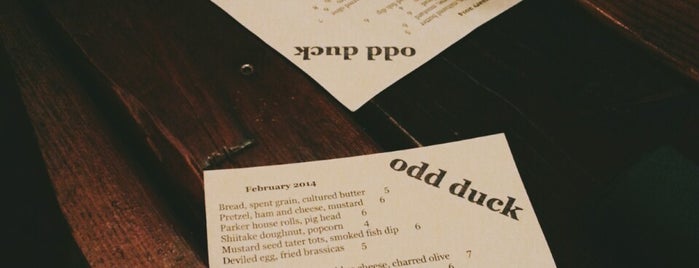 odd duck
odd duck
February 2014
Bread, spent grain, cultured butter 5
Pretzel, ham and cheese, mustard 6
Parker house rolls, pig head 6
Shiitake doughnut, popcorn 4
Mustard seed tater tots, smoked fish dip 6
Deviled egg, fried brassicas 5
cheese, charred olive 7
6